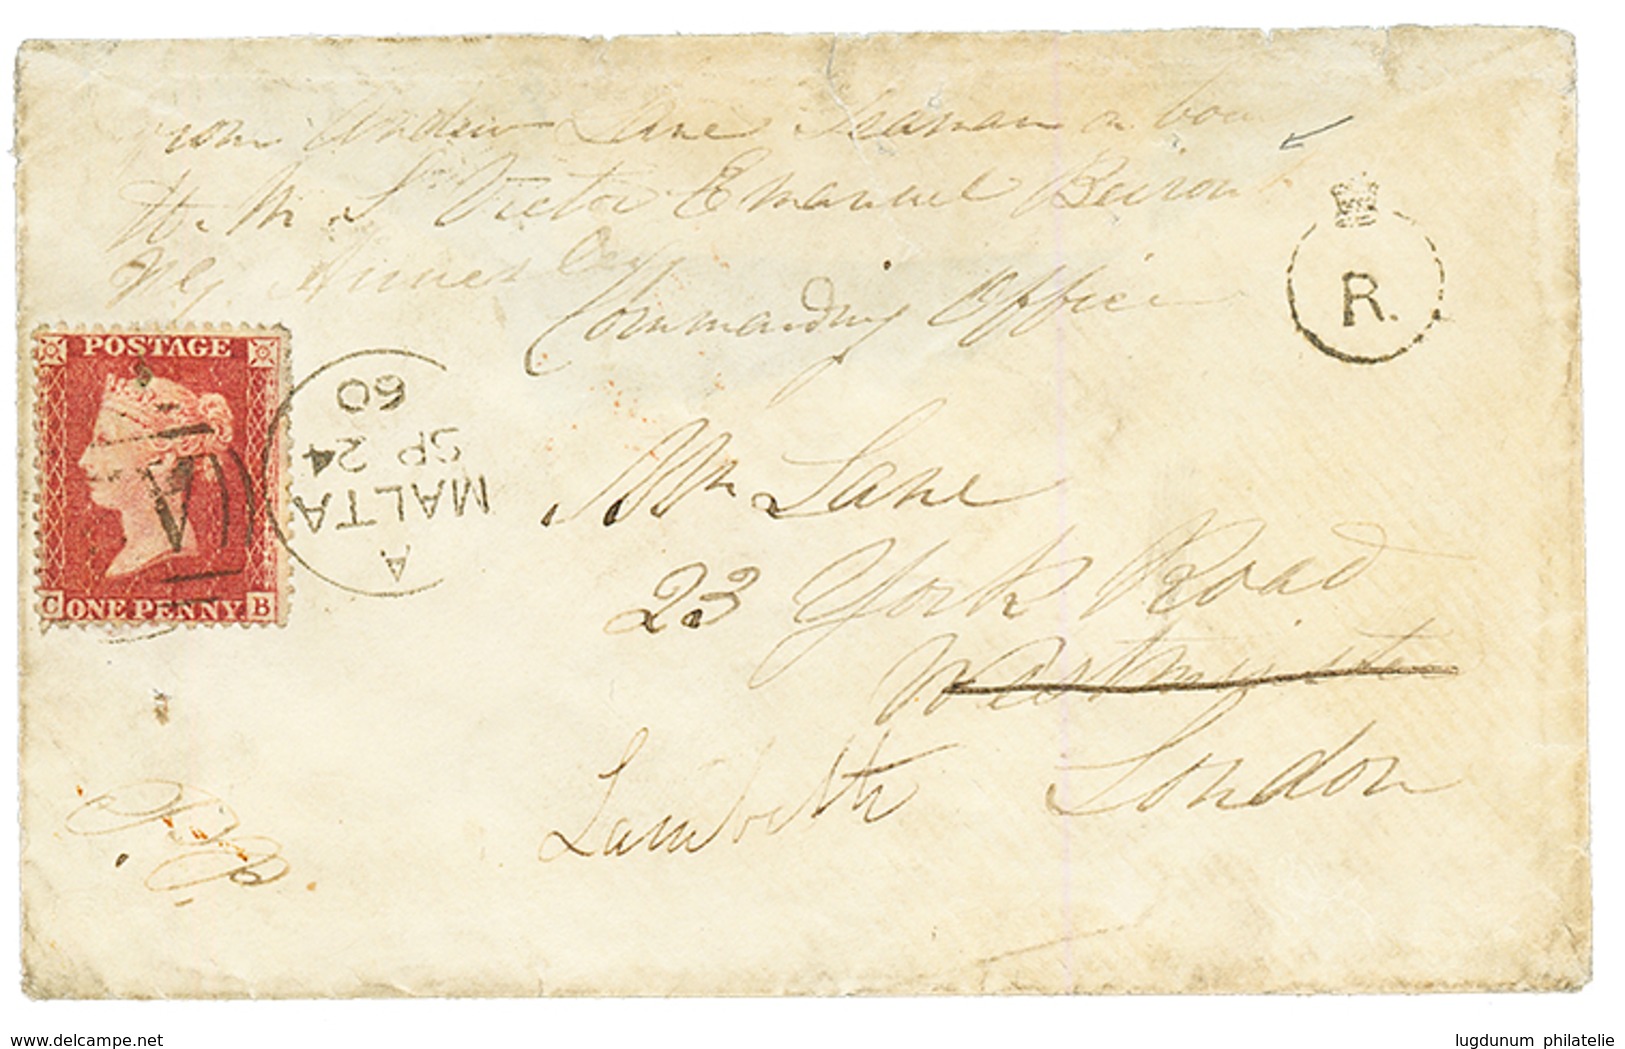 from Andrew Lane Seaman on boa
H. M. S Victor Emanuel Beirout
Commanding Officer
R.
POSTAGE
C ONE PENNY B
A
MALTA
SP 24
60
Mr Lane
23 York Road
Westminster
Lambeth London
www.delcampe.net
lugdunum philatelie